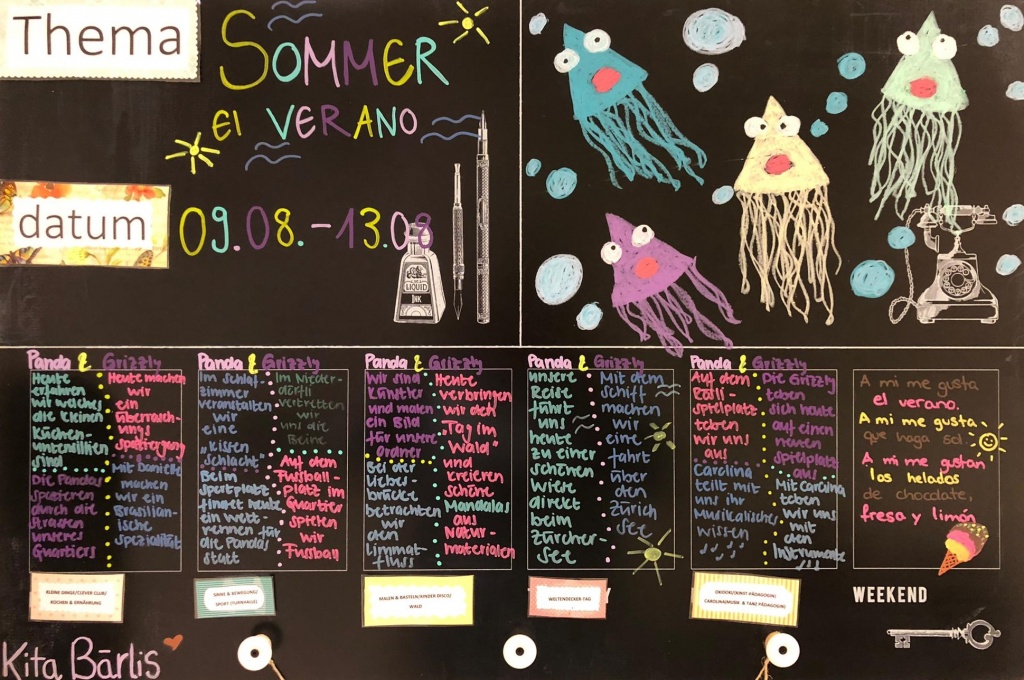 Thema
SOMMER
el VERANO
datum
09.08.-13.08
LIQUID
INK
Panda & Grizzly
Heute
erfahren
wir welches
die kleinen
Küchen-
utensilien
sind
Die Pandas
spazieren
durch die
Strassen
unseres
Quartiers
Heute machen
wir
ein
überrasch-
ungs
spaziergang
Mit Danielle
machen
wir ein
Brasilian-
ische
spezialität
Panda & Grizzly
Im Schlaf-
zimmer
veranstalten
wir
eine
„Kissen
schlacht"
Beim
Sportplatz
findet heute
ein Wett-
rennen für
die Pandas
statt
Im Nieder-
dörfli
vertretten
wir uns
die
Beine
Auf dem
Fussball-
platz im
Quartier
spielen
wir
Fussball
Panda & Grizzly
Wir sind
Künstler
und malen
ein Bild
für unsere
Ordner
Bei der
Lieber-
brücke
betrachten
wir
den
Limmat-
fluss
Heute
verbringen
wir den
"Tag im
Wald"
und
kreieren
schöne
Mandalas
aus
Natur-
materialien
Panda & Grizzly
unsere
Reise
führt
uns
heute
zu einer
schönen
Wiese
direkt
beim
Zürcher-
see
Mit dem
Schiff
machen
wir
eine
fahrt
über
den
Zürich
see
Panda & Grizzly
Auf dem
Röslі-
spielplatz
toben
wir uns
aus
Carolina
teilt mit
uns ihr
Musikalisches
wissen
Die Grizzly
toben
sich heute
auf einen
neuen
spielplatz
aus
Mit Carolina
toben
wir uns
mit
den
Instrumente
A mi me gusta
el verano.
A mi me gusta
que haga sol
A mi me gustan
los helados
de chocolate,
fresa y limón
KLEINE DINGE/CLEVER CLUB/
KOCHEN & ERNÄHRUNG
SINNE & BEWEGUNG/
SPORT (TURNHALLE)
MALEN & BASTELN/KINDER DISCO/
WALD
WELTENDECKER-TAG
CAROLINA(MUSIK- & TANZ PÄDAGOGIN)
WEEKEND
Kita Bärlis